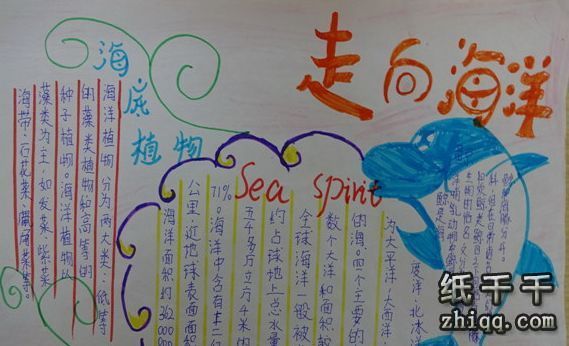 走向海洋
海底植物
海洋植物分为两大类：低等
的藻类植物和高等的
种子植物。海洋植物以
藻类为主，如发菜、紫菜
海带、石花菜、鹧鸪菜等。
Sea spirit
度洋、北冰洋
为太平洋、大西洋
的海。四个主要的
数个大洋和面积较
全球海洋一般被
约占球地上总水量
五千多万立方千米的
71%。海洋中含有十三亿
公里，近地球表面面积
海洋面积约362 000 000
纸千千
zhiqq.com